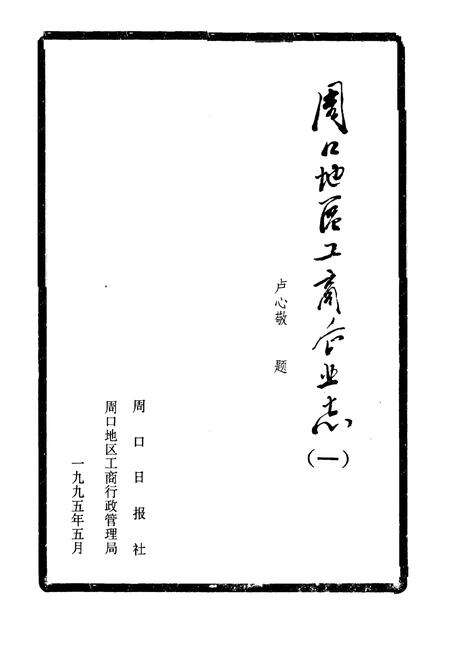 周口地区工商企业志(一)
卢心敬 题
周口日报社
周口地区工商行政管理局
一九九五年五月